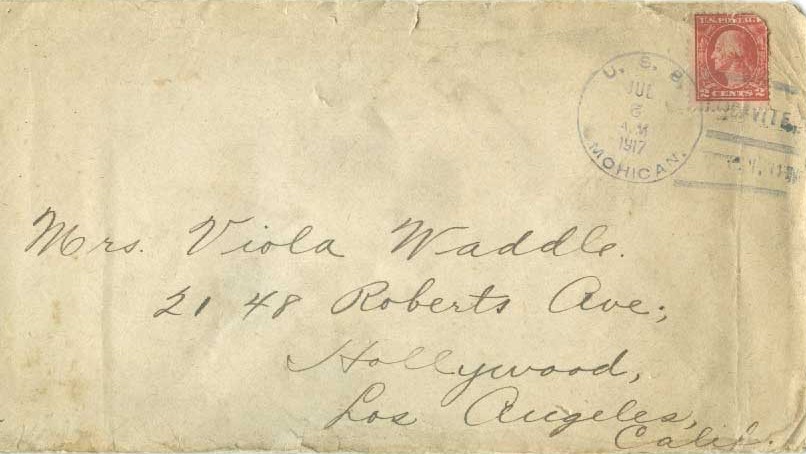 U.S. POSTAGE
2 CENTS 2
U. S. S.
JUL
6
A.M
1917
MOHICAN.
Mrs. Viola Waddle.
2148 Roberts Ave.,
Hollywood,
Los Angeles,
Calif.